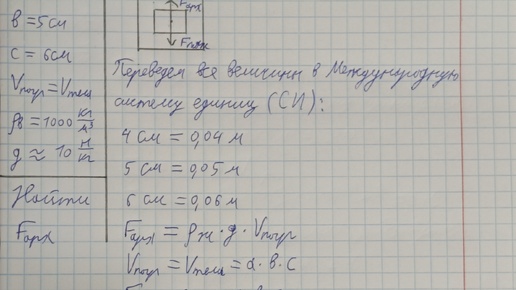 в = 5 см
с = 6 см
Vпогр = Vтела
ρв = 1000 кг/м³
g ≈ 10 Н/кг
Найти
Fарх
Fарх
Fтяж
Переведем все величины в Международную
систему единиц (СИ):
4 см = 0,04 м
5 см = 0,05 м
6 см = 0,06 м
Fарх = ρж · g · Vпогр
Vпогр = Vтела = a · в · с